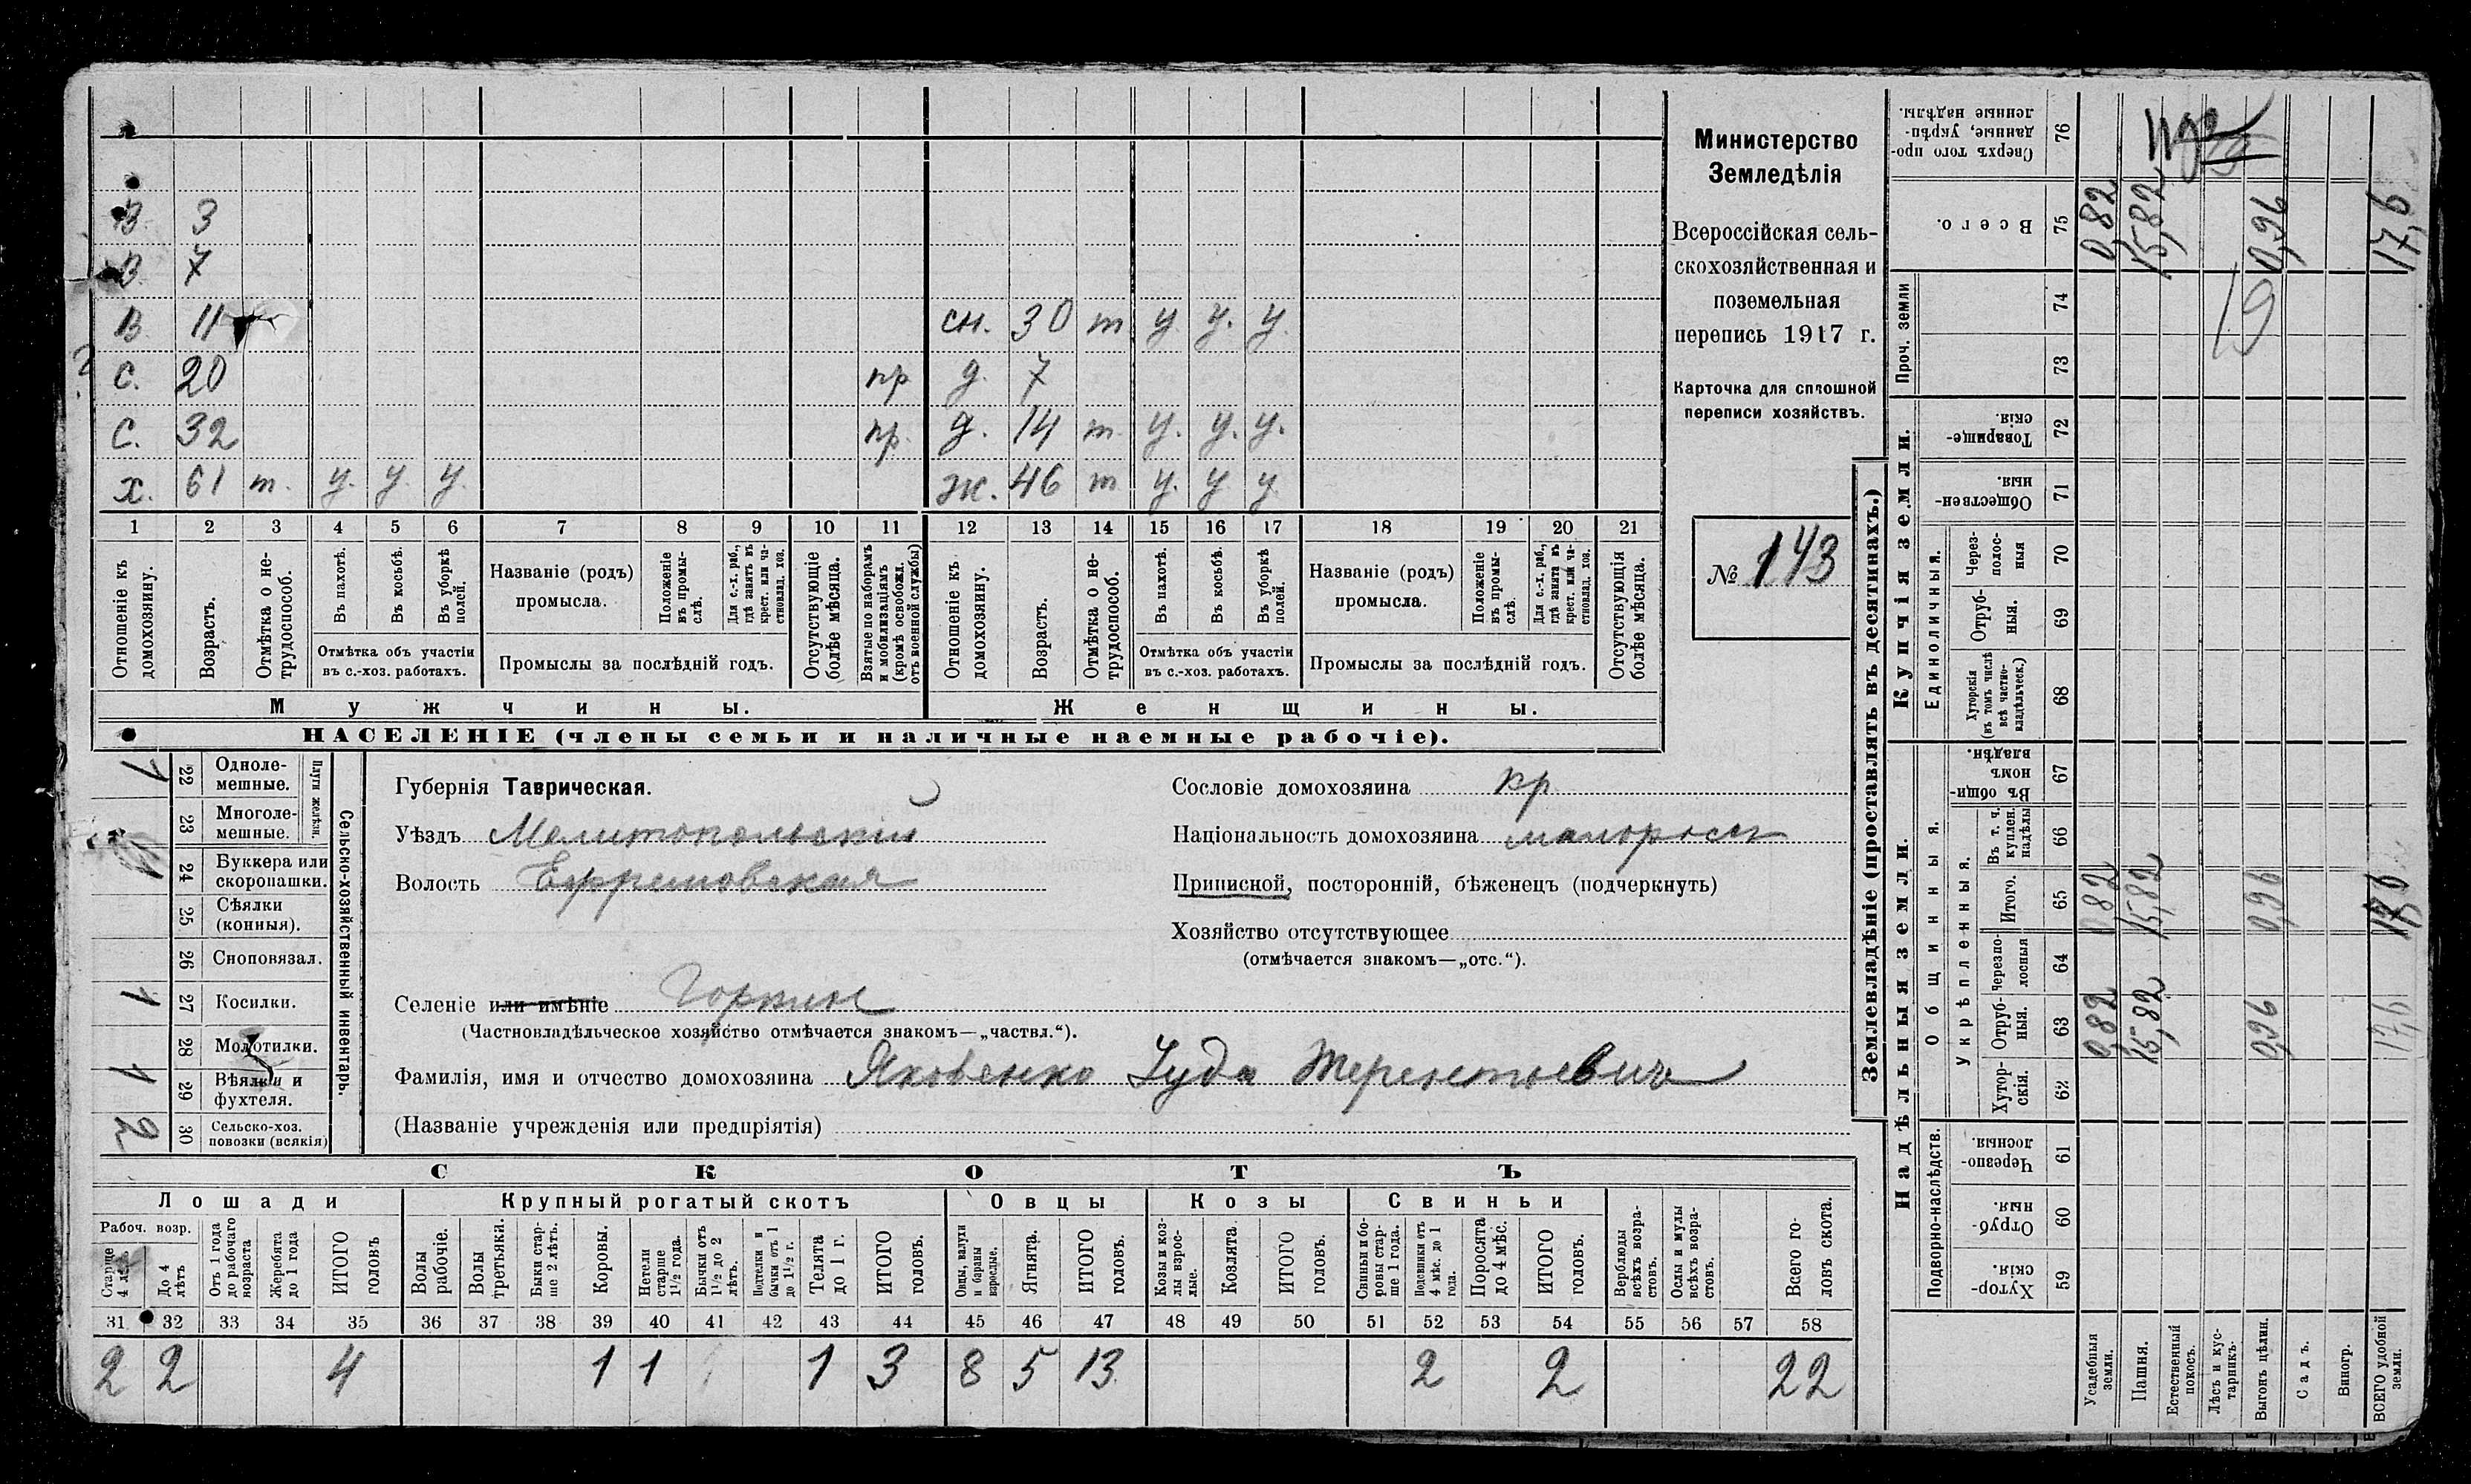 В. 3
В. 7
В 11 сн. 30 т у. у. у.
С. 20 пр д. 7
С. 32 пр. д. 14 т. у. у. у.
Х. 61 т. у. у. у. ж. 46 т у. у у
1 2 3 4 5 6 7 8 9 10 11 12 13 14 15 16 17 18 19 20 21
Отношеніе къ домохозяину.
Возрастъ.
Отмѣтка о не-трудоспособ.
Въ пахотѣ.
Въ косьбѣ.
Въ уборкѣ полей.
Отмѣтка объ участіи
въ с.-хоз. работахъ.
Названіе (родъ)
промысла.
Положеніе въ промы-слѣ.
Для с.-х. раб., гдѣ занятъ въ крест. или ча-стновлад. хоз.
Промыслы за послѣдній годъ.
Отсутствующіе болѣе мѣсяца.
Взятые по наборамъ и мобилизаціямъ (кромѣ освобожд. отъ военной службы)
Отношеніе къ домохозяину.
Возрастъ.
Отмѣтка о не-трудоспособ.
Въ пахотѣ.
Въ косьбѣ.
Въ уборкѣ полей.
Отмѣтка объ участіи
въ с.-хоз. работахъ.
Названіе (родъ)
промысла.
Положеніе въ промы-слѣ.
Для с.-х. раб., гдѣ занята въ крест. или ча-стновлад. хоз.
Промыслы за послѣдній годъ.
Отсутствующія болѣе мѣсяца.
Мужчины. Женщины.
НАСЕЛЕНІЕ (члены семьи и наличные наемные рабочіе).
Министерство
Земледѣлія
Всероссійская сель-
скохозяйственная и
поземельная
перепись 1917 г.
Карточка для сплошной
переписи хозяйствъ.
№ 143
Сельско-хозяйственный инвентарь.
Плуги желѣзн.
1 22 Одноле-мешные.
23 Многоле-мешные.
24 Буккера или скоропашки.
25 Сѣялки (конныя).
26 Сноповязал.
1 27 Косилки.
28 Молотилки.
1 29 Вѣялки и фухтеля.
2 30 Сельско-хоз. повозки (всякія)
Губернія Таврическая.
Уѣздъ Мелитопольскій
Волость Ефремовская
Селеніе или имѣніе Горкин
(Частновладѣльческое хозяйство отмѣчается знакомъ—„частвл.“).
Фамилія, имя и отчество домохозяина Яковенко Іуда Терентьевич
(Названіе учрежденія или предпріятія)
Сословіе домохозяина кр.
Національность домохозяина малоросс
Приписной, посторонній, бѣженецъ (подчеркнуть)
Хозяйство отсутствующее
(отмѣчается знакомъ—„отс.“).
СКОТЪ
Лошади Крупный рогатый скотъ Овцы Козы Свиньи
Рабоч. возр.
Старше 4 лѣтъ
До 4 лѣтъ
Отъ 1 года до рабочаго возраста
Жеребята до 1 года
ИТОГО головъ
Волы рабочіе.
Волы третьяки.
Быки стар-ше 2 лѣтъ.
Коровы.
Нетели старше 1½ года.
Бычки отъ 1½ до 2 лѣтъ.
Подтелки и бычки отъ 1 до 1½ г.
Телята до 1 г.
ИТОГО головъ.
Овцы, валухи и бараны взрослые.
Ягнята.
ИТОГО головъ.
Козы и коз-лы взрос-лые.
Козлята.
ИТОГО головъ.
Свиньи и бо-ровы стар-ше 1 года.
Подсвинки отъ 4 мѣс. до 1 года.
Поросята до 4 мѣс.
ИТОГО головъ.
Верблюды всѣхъ возра-стовъ.
Ослы и мулы всѣхъ возра-стовъ.
Всего го-ловъ скота.
31 32 33 34 35 36 37 38 39 40 41 42 43 44 45 46 47 48 49 50 51 52 53 54 55 56 57 58
2 2 4 1 1 1 3 8 5 13 2 2 22
Землевладѣніе (проставлять въ десятинахъ.)
Надѣльныя земли. Купчія земли.
Подворно-наслѣдств.
Общинныя.
Укрѣпленныя.
Единоличныя.
Проч. земли
59 Хутор-скія.
60 Отруб-ныя.
61 Черезпо-лосныя.
62 Хутор-скія.
63 Отруб-ныя.
64 Черезпо-лосныя
65 Итого.
66 Въ т. ч. куплен. надѣлы
67 Въ общи-номъ владѣн.
68 Хуторскія (въ томъ числѣ всѣ частно-владѣльческ.)
69 Отруб-ныя.
70 Через-полос-ныя
71 Обществен-ныя.
72 Товарище-скія.
73
74
75 Всего.
76 Сверхъ того про-данные, укрѣп-ленные надѣлы.
Усадебныя земли. 0,82 0,82 0,82
Пашня. 15,82 15,82 15,82
Естественный покосъ.
Лѣсъ и кус-тарникъ.
Выгонъ цѣлин. 0,96 0,96 0,96
Садъ.
Виногр.
ВСЕГО удобной земли. 17,6 17,6
19